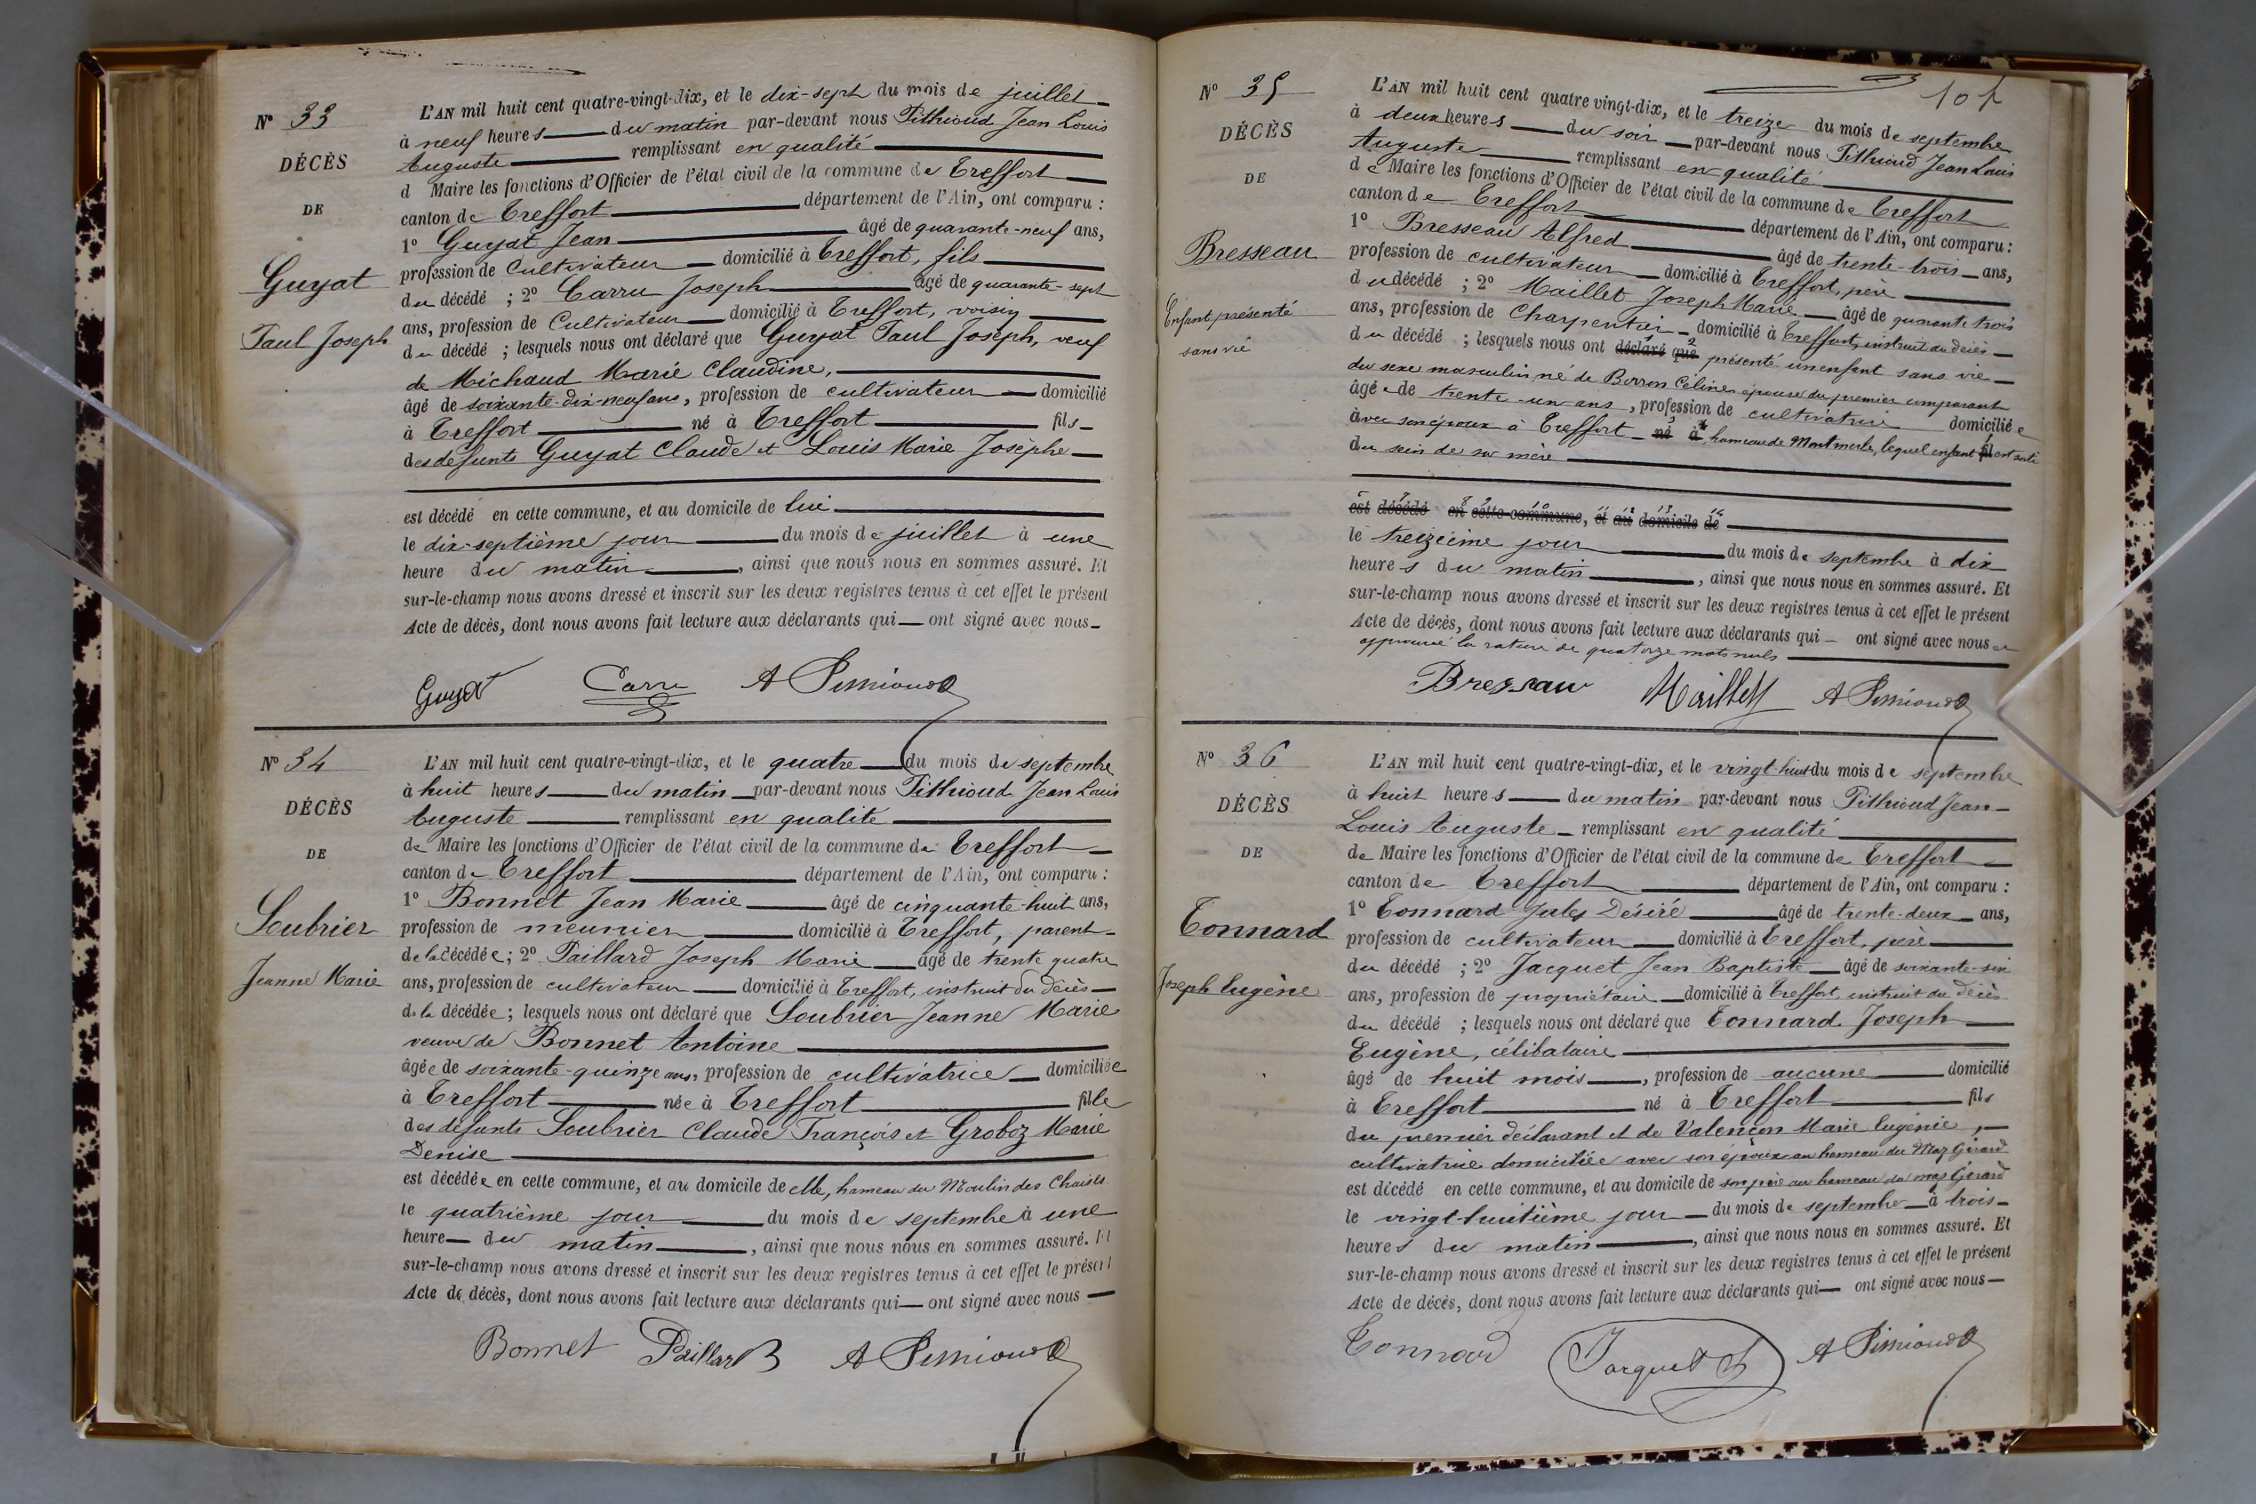 N° 33
DÉCÈS
DE
Guyat
Paul Joseph
L'AN mil huit cent quatre-vingt-dix, et le dix-sept du mois de juillet
à neuf heures du matin par-devant nous Pithioud Jean Louis
Auguste remplissant en qualité
d Maire les fonctions d'Officier de l'état civil de la commune de Treffort
canton de Treffort département de l'Ain, ont comparu :
1° Guyat Jean âgé de quarante-neuf ans,
profession de Cultivateur domicilié à Treffort, fils
du décédé ; 2° Carru Joseph âgé de quarante-sept
ans, profession de Cultivateur domicilié à Treffort, voisin
du décédé ; lesquels nous ont déclaré que Guyat Paul Joseph, veuf
de Michaud Marie Claudine,
âgé de soixante-dix-neuf ans, profession de cultivateur domicilié
à Treffort né à Treffort fils
des défunts Guyat Claude et Louis Marie Josèphe
est décédé en cette commune, et au domicile de lui
le dix-septième jour du mois de juillet à une
heure du matin, ainsi que nous nous en sommes assuré. Et
sur-le-champ nous avons dressé et inscrit sur les deux registres tenus à cet effet le présent
Acte de décès, dont nous avons fait lecture aux déclarants qui ont signé avec nous
Guyat Carru A Pithioud
N° 34
DÉCÈS
DE
Soubrier
Jeanne Marie
L'AN mil huit cent quatre-vingt-dix, et le quatre du mois de septembre
à huit heures du matin par-devant nous Pithioud Jean Louis
Auguste remplissant en qualité
de Maire les fonctions d'Officier de l'état civil de la commune de Treffort
canton de Treffort département de l'Ain, ont comparu :
1° Bonnet Jean Marie âgé de cinquante-huit ans,
profession de meunier domicilié à Treffort, parent
de la décédée ; 2° Paillard Joseph Marie âgé de trente quatre
ans, profession de cultivateur domicilié à Treffort, instruit du décès
de la décédée ; lesquels nous ont déclaré que Soubrier Jeanne Marie
veuve de Bonnet Antoine
âgée de soixante-quinze ans, profession de cultivatrice domiciliée
à Treffort née à Treffort fille
des défunts Soubrier Claude François et Groboz Marie
Denise
est décédée en cette commune, et au domicile de elle, hameau du Moulin des Chaises
le quatrième jour du mois de septembre à une
heure du matin, ainsi que nous nous en sommes assuré. Et
sur-le-champ nous avons dressé et inscrit sur les deux registres tenus à cet effet le présent
Acte de décès, dont nous avons fait lecture aux déclarants qui ont signé avec nous
Bonnet Paillard A Pithioud
101
N° 35
DÉCÈS
DE
Bresseau
Enfant présenté
sans vie
L'AN mil huit cent quatre vingt-dix, et le treize du mois de septembre
à deux heures du soir par-devant nous Pithioud Jean Louis
Auguste remplissant en qualité
de Maire les fonctions d'Officier de l'état civil de la commune de Treffort
canton de Treffort département de l'Ain, ont comparu :
1° Bresseau Alfred âgé de trente-trois ans,
profession de cultivateur domicilié à Treffort, père
du décédé ; 2° Maillet Joseph Marie âgé de quarante trois
ans, profession de Charpentier domicilié à Treffort, instruit du décès
du décédé ; lesquels nous ont déclaré que présenté un enfant sans vie
du sexe masculin né de Borron Céline épouse du premier comparant
âgée de trente-un ans, profession de cultivatrice domiciliée
avec son époux à Treffort né à hameau de Montmerle, lequel enfant fils est sorti
du sein de sa mère
est décédé en cette commune, et au domicile de
le treizième jour du mois de septembre à dix
heures du matin, ainsi que nous nous en sommes assuré. Et
sur-le-champ nous avons dressé et inscrit sur les deux registres tenus à cet effet le présent
Acte de décès, dont nous avons fait lecture aux déclarants qui ont signé avec nous et
approuvé la rature de quatorze mots nuls
Bressau Maillet A Pithioud
N° 36
DÉCÈS
DE
Tonnard
Joseph Eugène
L'AN mil huit cent quatre-vingt-dix, et le vingt-huit du mois de septembre
à huit heures du matin par-devant nous Pithioud Jean
Louis Auguste remplissant en qualité
de Maire les fonctions d'Officier de l'état civil de la commune de Treffort
canton de Treffort département de l'Ain, ont comparu :
1° Tonnard Jules Désiré âgé de trente-deux ans,
profession de cultivateur domicilié à Treffort, père
du décédé ; 2° Jacquet Jean Baptiste âgé de soixante-six
ans, profession de propriétaire domicilié à Treffort, instruit du décès
du décédé ; lesquels nous ont déclaré que Tonnard Joseph
Eugène, célibataire
âgé de huit mois, profession de aucune domicilié
à Treffort né à Treffort fils
du premier déclarant et de Valençon Marie Eugénie,
cultivatrice domiciliée avec son époux au hameau du Maz Girard
est décédé en cette commune, et au domicile de son père au hameau du mas Girard
le vingt-huitième jour du mois de septembre à trois
heures du matin, ainsi que nous nous en sommes assuré. Et
sur-le-champ nous avons dressé et inscrit sur les deux registres tenus à cet effet le présent
Acte de décès, dont nous avons fait lecture aux déclarants qui ont signé avec nous
Tonnard Jacquet A Pithioud